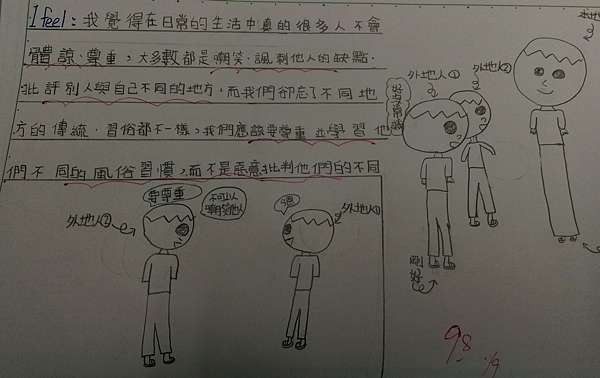 I feel：我覺得在日常的生活中真的很多人不會
體諒、尊重，大多數都是嘲笑、諷刺他人的缺點.
批評別人與自己不同的地方，而我們卻忘了不同地
方的傳統、習俗都不一樣，我們應該要尊重並學習他
們不同的風俗習慣，而不是惡意批判他們的不同
外地人①
外地人②
剛好
要尊重
不可以嘲笑他人
外地人②
外地人①
98
1/9